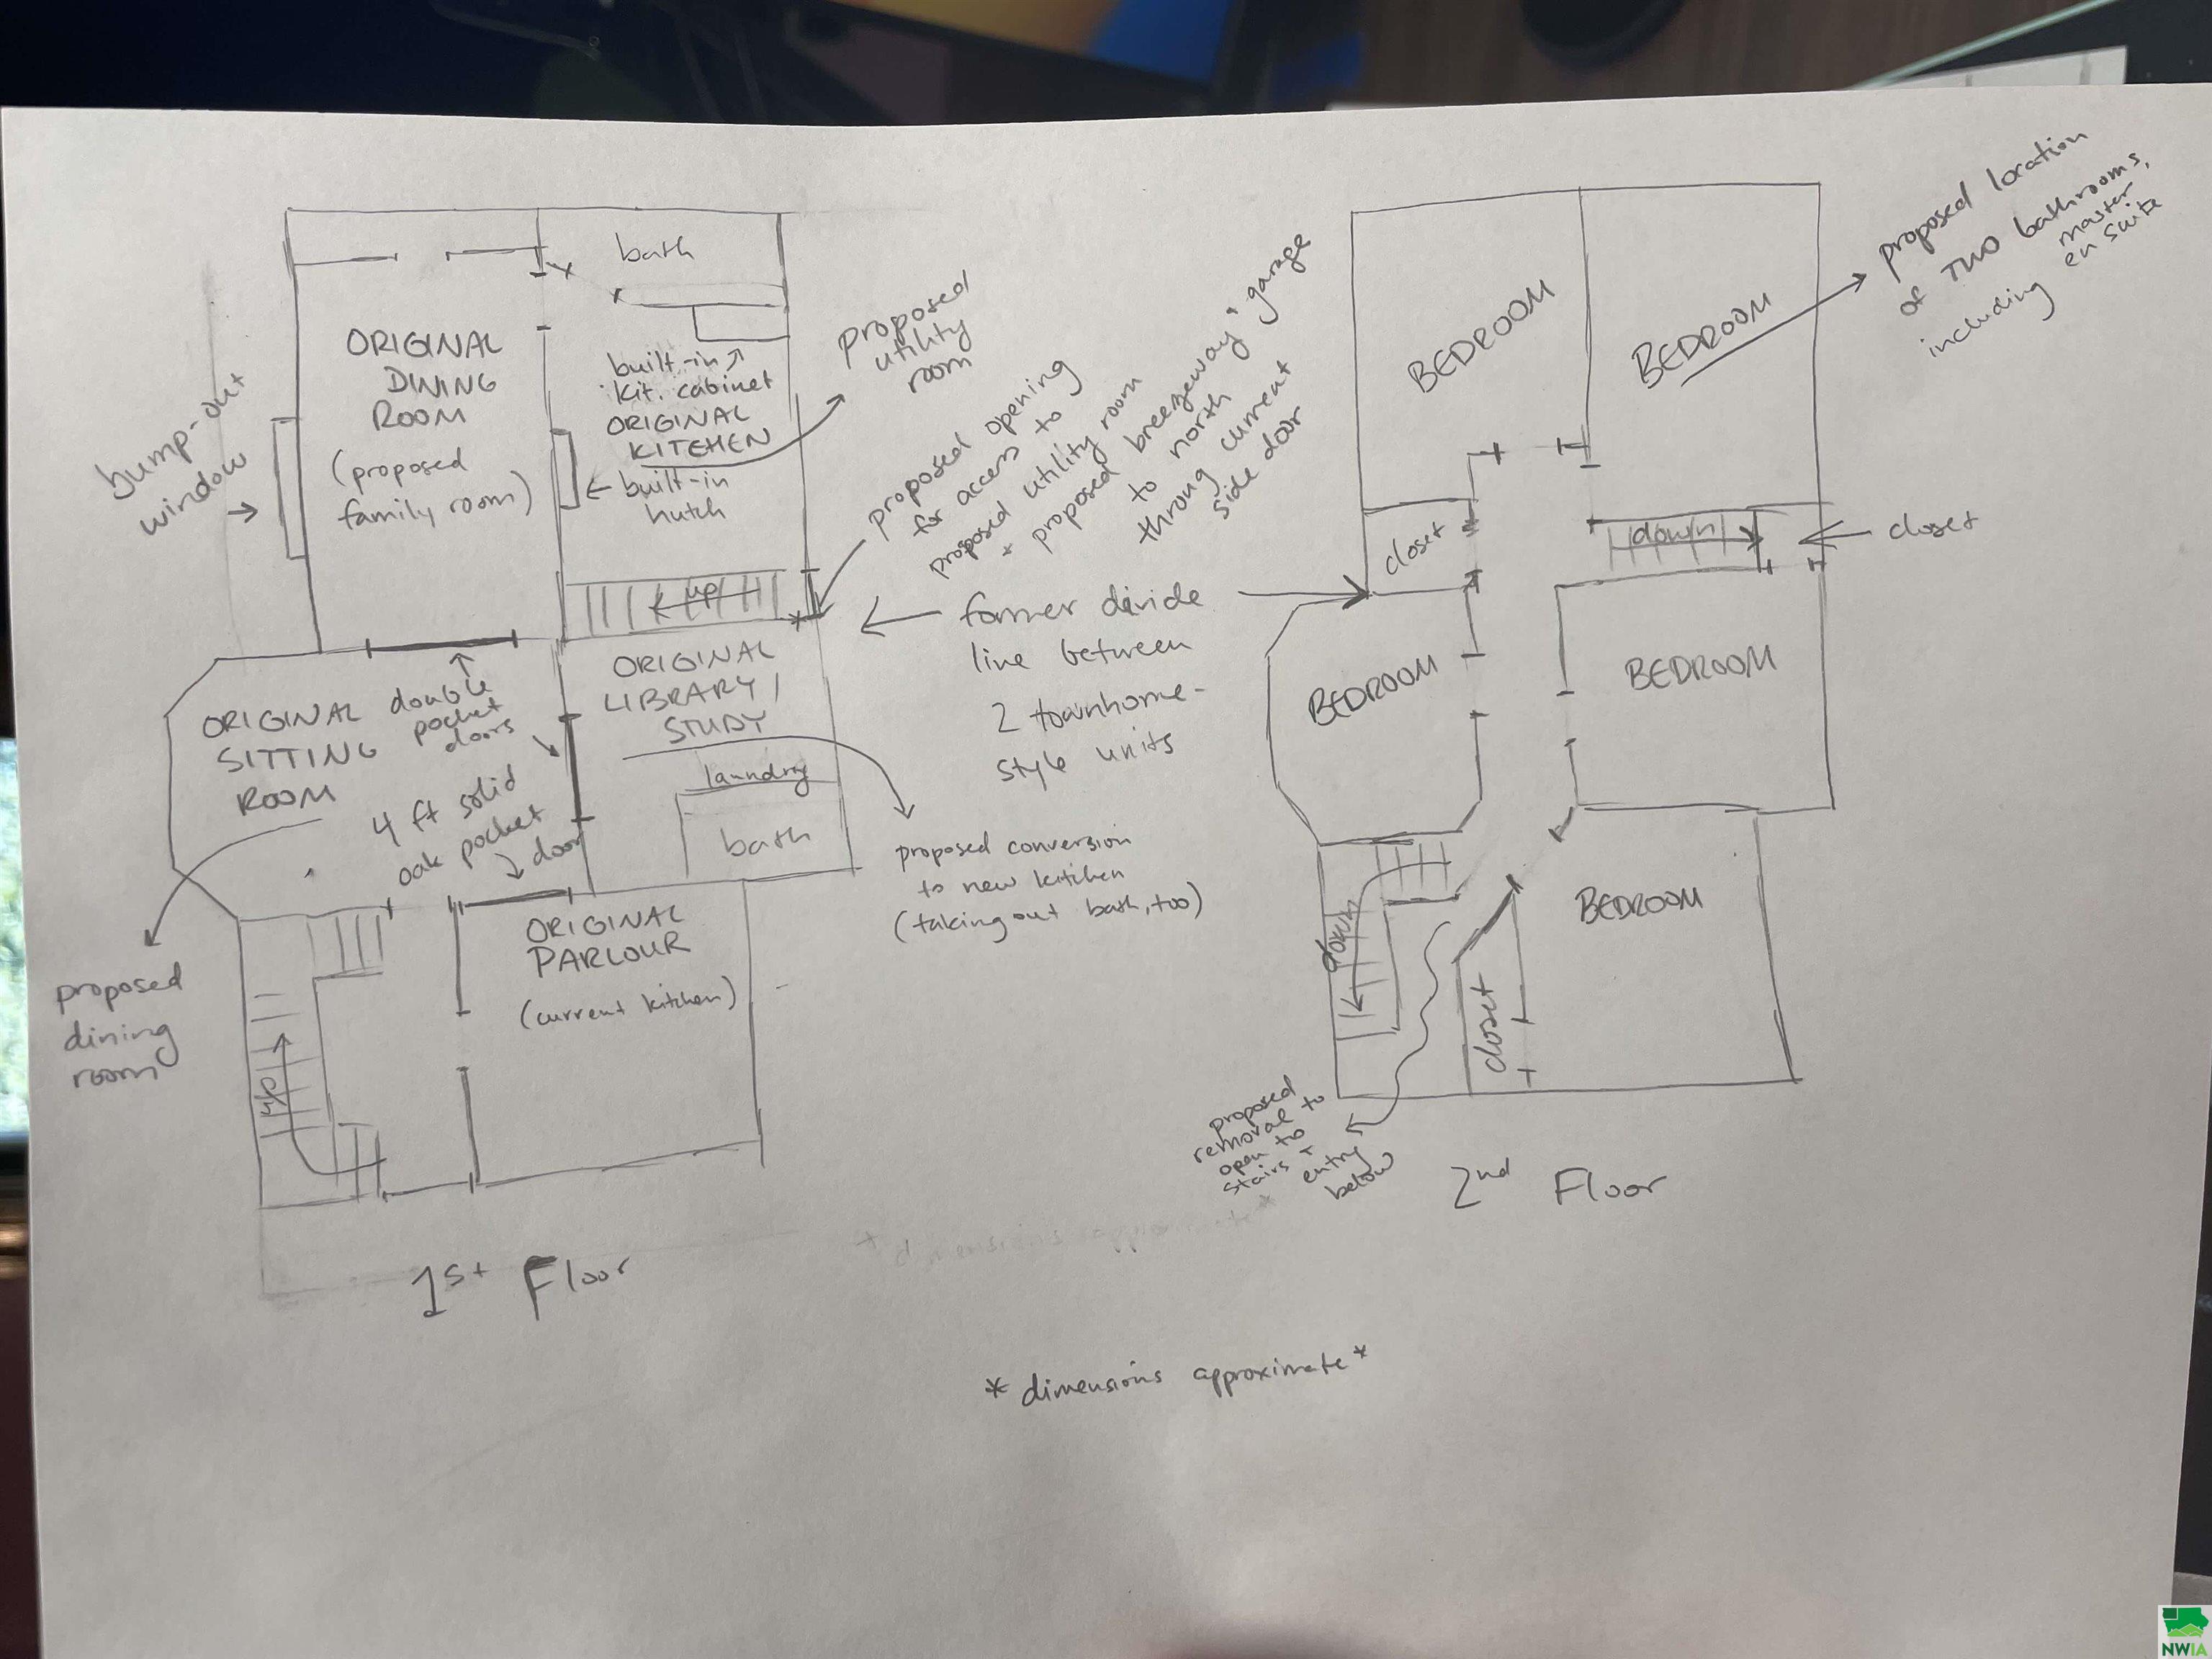 bath
ORIGINAL
DINING
ROOM
(proposed
family room)
bump-out
window
built-in
kit. cabinet
ORIGINAL
KITCHEN
built-in
hutch
proposed
utility
room
proposed opening
for access to
proposed utility room
+ proposed breezeway + garage
to north
throug current
side door
up
former divide
line between
2 townhome-
style units
ORIGINAL
SITTING
ROOM
double
pocket
doors
4 ft solid
oak pocket
door
ORIGINAL
LIBRARY/
STUDY
laundry
bath
proposed conversion
to new kitchen
(taking out bath, too)
proposed
dining
room
ORIGINAL
PARLOUR
(current kitchen)
up
1st Floor
BEDROOM
BEDROOM
proposed location
of TWO bathrooms,
including master
en suite
closet
down
closet
BEDROOM
BEDROOM
down
closet
BEDROOM
proposed
removal to
open to
stairs +
entry
below
2nd Floor
*dimensions approximate*
NWIA